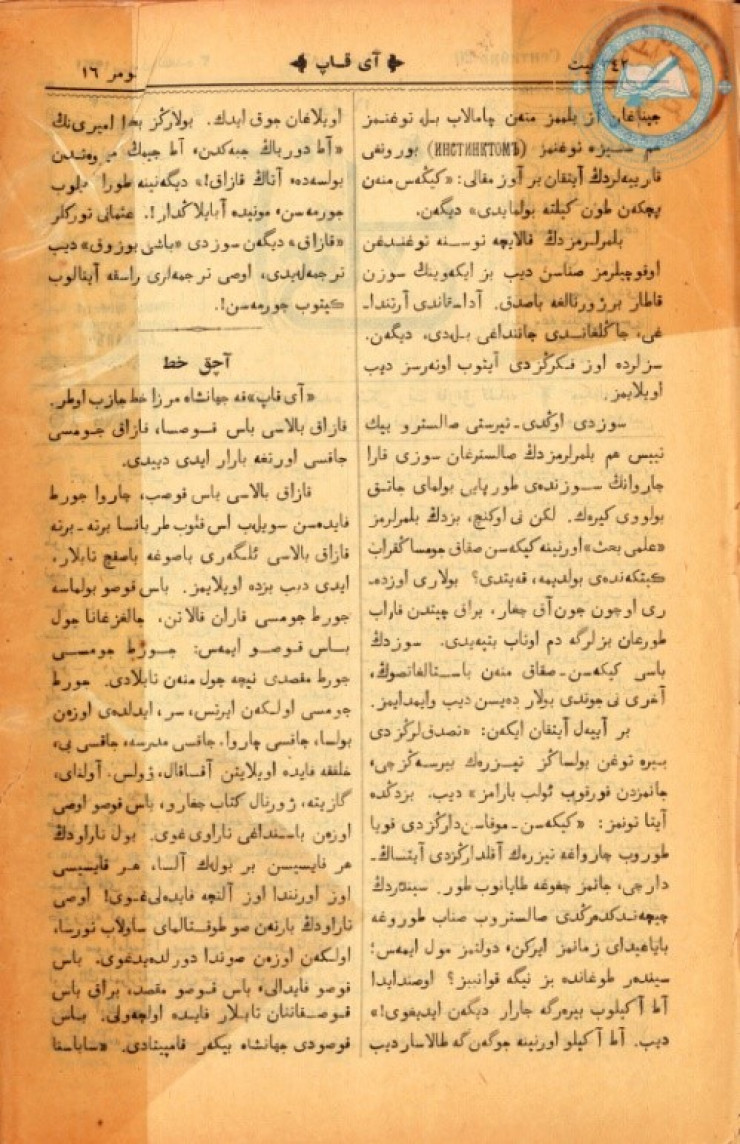 ٣٤٢ بيت
آی قـاپ
نومر ١٦
جيناغان از بلميمز منەن چامالاب بـل توغنمز
هم سيزە توغنمز (ИНСТИНКТОМЪ) بورونغی
قارييەلردڭ آيتقان بر آوز مقالی: «كيگەس منەن
پچكەن طون كيلتە بولمايدی» ديگەن.
بلمرلرمزدڭ قالايچە توسـنە توغندغن
اوقوچيلرمز صناسن ديب بز ايكەوينڭ سوزن
قاطار برژورنالغە باصدق. آداـقاندی آرتنداـ
غی، جاڭلغانـدی جانتداغی بـلەدی، ديگەن.
سزلردە اوز فكرڭزدی آيتوب اونەرسز ديب
اويلايمز.
سوزدی اوڭدی ـ تيرستی صالسترو بيك
تييس هم بلمرلرمزدڭ صالسترغان سوزی قارا
چاروانڭ سـوزندەی طورپايی بولمای جاتـق
بولووی كيرەك. لكن نی اوكنچ، بزدڭ بلمرلرمز
«علمی بحث» اورنينە كيكەسن صقاق جومساڭقراب
كيتكەندەی بولديمە، قەيتدی؟ بولاری اوزدەـ
ری اوچون جون آق جغار، براق چيتدن قاراب
طورعان بزلرگە دم اوناب بتپەيدی. سوزدڭ
باسی كيكەسن ـ صقاق منەن باسـتالغانصوڭ،
آخری نی جوندی بولار دەيسن ديب وايمدايمز.
بر آييەل آيتقان ايكەن: «تصدق لرڭزدی
بيرە توغن بولساڭز تيـزرەك بيرسەڭزجی،
جانمزدن قورقوب ئولب بارامز» ديب. بزدڭدە
آيتا تونمز: «كيكەسن ـ موقاسن دارڭزدی قويا
طوروب چارواغە تيزرەك آقلدارڭزدی آيتساڭـ
دارچی، جانمز چغوغە طايانوب طور. سيندردڭ
چيچەنـدكدەرڭدی صالستروب صناب طوروغە
باياغيدای زمانمز ايركن، دولتمز مول ايمەس؛
سيندەر طوغاندە بز نيگە قوانبيز؟ اوصندايدا
آط آكيلوب بيرەرگە جارار ديگەن ايديغوی!»
ديب. آط آكيلو اورنينە جوگەن گە طالاسارديب
اويلاغان جوق ايدك. بولارڭز بخا اميری‌نڭ
«آط دورباڭ جيەكدن، آط جيمڭ ميرەشدن
بولسەدە، آتاڭ قازاق!» ديگەنينە طورا بلوب
جورمەسن، مونيدە آبايلاڭدار!. عثمانی توركلر
«قازاق» ديگەن سوزدی «باشی بوزوق» ديب
ترجمەلەيدی، اوصی ترجمەلری راسقە آينالوب
كيتوب جورمەسن!.
آچق خط
«آی قاپ» قە جهانشاه مرزا خط جازب اوطر.
قازاق بالاسی باس قـوصسا، قازاق جـومسی
جاقسی اورتغە بارار ايدی ديیدی.
قازاق بالاسی باس قوصب، چاروا جورط
فايدەسن سويلب اس قئوب طربانسا برتە ـ برتە
قازاق بالاسی ئلگەری باصوغە باصقچ تابلار،
ايدی ديب بزدە اويلايمز. باس قوصو بولماسە
جورط جومسی قاران قالاتن، جالغزغانا جول
بـاس قـوصـو ايمەس: جـورط جومـسی
جورط مقصدی نيچە جول منەن تابلادی. جورط
جومسی اولـكەن ايرتس، سر، ايدلدەی اوزەن
بولسا، جاقسی چاروا. جاقسی مدرسە، جاقسی بی،
خلققە فايدە اويلايتن آقـاقال، ژولس. آولنای،
گازيتە، ژورنال كتاب جغارو، باس قوصو اوصی
اوزەن باسـنداغی تاراوی غوی. بول تاراودڭ
هر قايسيسن بر بولەك آلـا، هـر قايسيسی
اوز اورنندا اوز آلنچە فايدەلی غـوی! اوصی
تاراودڭ بارنەن صو طوقـتالمای ساولاب تورسا،
اولكەن اوزەن صوندا دورلدەيدغوی. باس
قوصو فايدالی، باس قـوصو مقصد، براق باس
قـوصـقاننان تابـلار فايدە اولچەولی. بـاس
قوصودی جهانشاه بيكەر قامپيتادی. «ساباستا